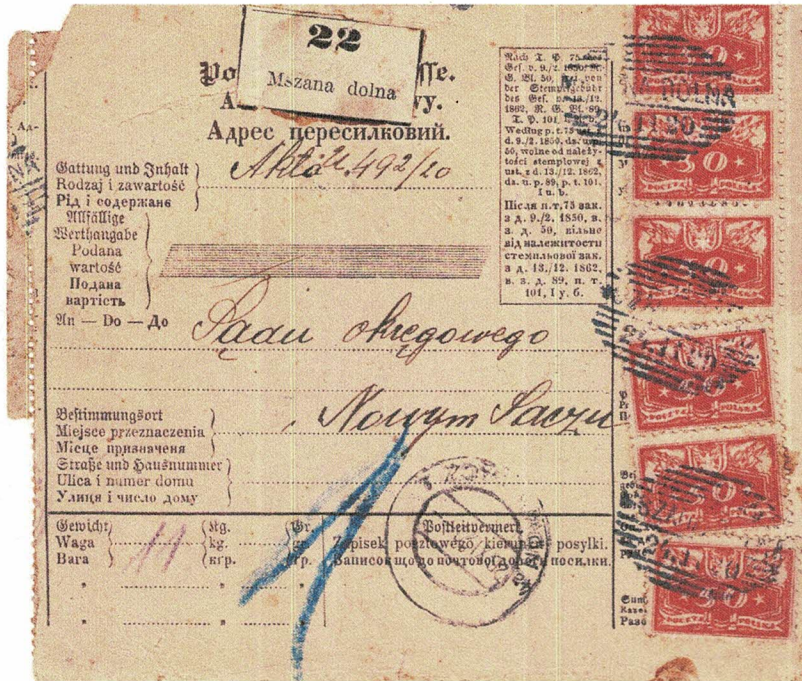 22
Mszana dolna
Адрес пересилковий.
Gattung und Inhalt
Rodzaj i zawartość
Рід і содержанє
Akta U 492/20
Allfällige
Werthangabe
Podana
wartość
Подана
вартість
An — Do — До
Sądu okręgowego
Nowym Sączu
Bestimmungsort
Miejsce przeznaczenia
Місце призначеня
Straße und Hausnummer
Ulica i numer domu
Улиця і число дому
Gewicht
Waga
Вага
11
Kg.
kg.
кґр.
Postleitvermerk
Zapisek pocztowego kierunku posyłki.
Записок що до почтової дороги посилки.
Nach T. P. 75 des
Ges. v. 9./2. 1850, R.
G. Bl. 50, frei von
der Stempelgebühr
des Ges. v. 13./12.
1862, R. G. Bl. 89,
T. P. 101, I u. b.
Według p. t. 75 ust.
d. 9./2. 1850, dz. u. p.
50, wolne od należy-
tości stemplowej z
ust. z d. 13./12. 1862,
dz. u. p. 89, p. t. 101,
I u. b.
Після п. т. 75 зак.
з д. 9./2. 1850, в.
з. д. 50, вільно
від належитости
стемпльової зак.
з д. 13./12. 1862,
в. з. д. 89, п. т.
101, I у. б.
50
DOLNA
50
POCZTA POLSKA
50
50
POCZTA POLSKA
50
50
POCZTA POLSKA